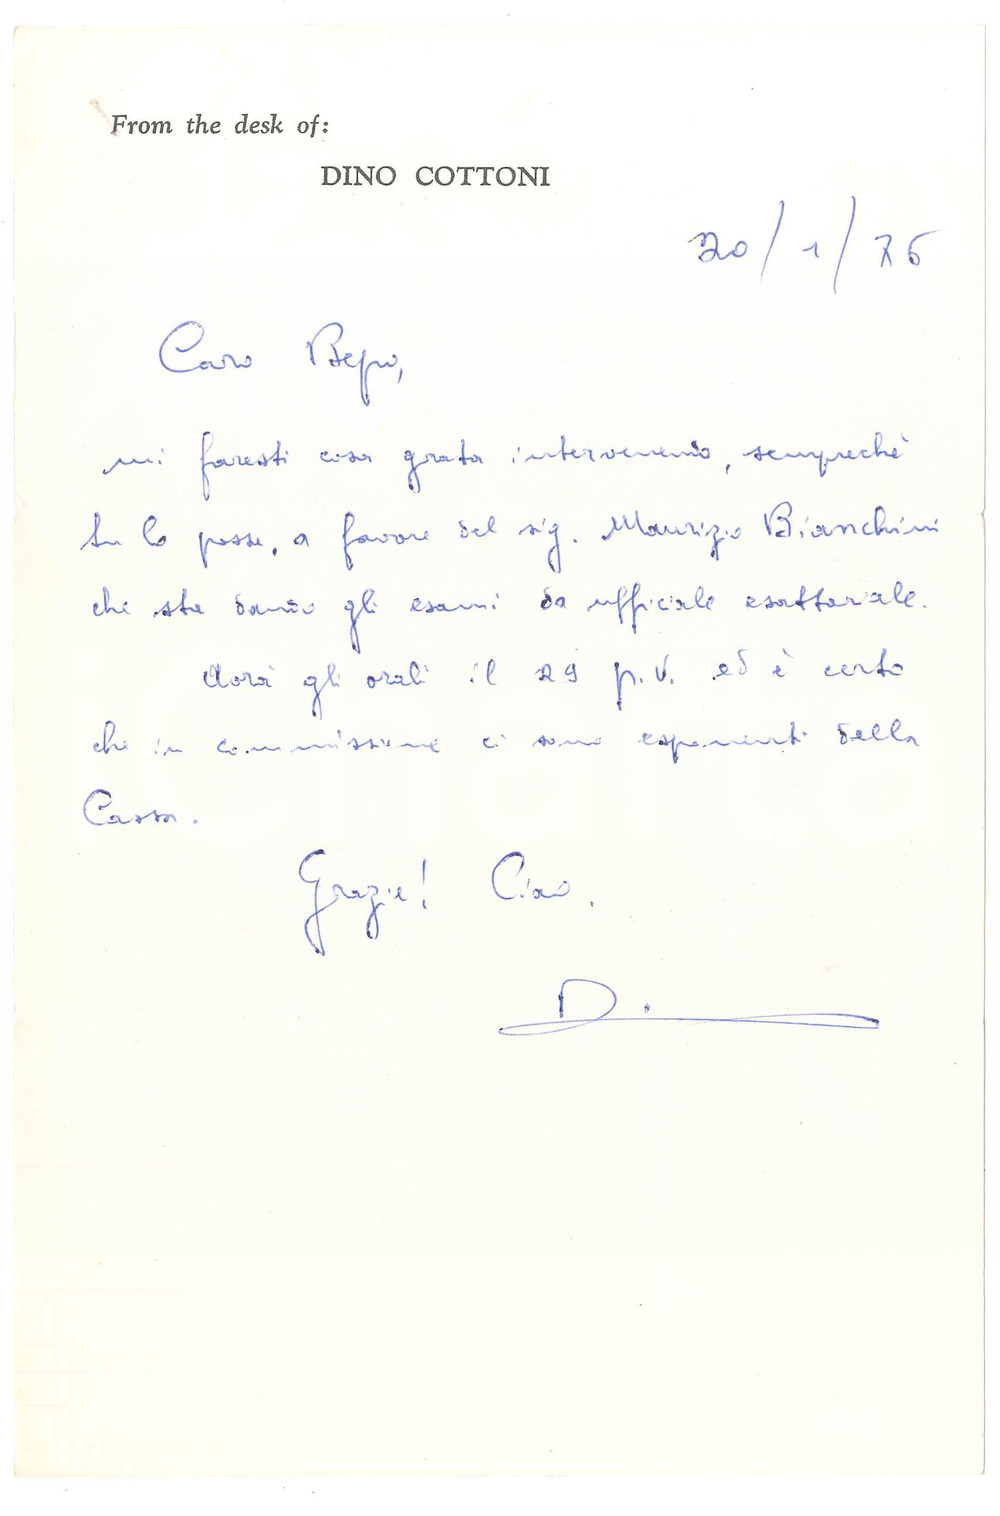 From the desk of:
DINO COTTONI
20/1/76
Caro Bepo,
mi faresti cosa grata intervenendo, sempreché
tu lo possa, a favore del sig. Maurizio Bianchini
che sta dando gli esami da ufficiale esattoriale.
Avrà gli orali il 29 p.v. ed è certo
che in commissione ci sono esponenti della
Cassa.
Grazie! Ciao.